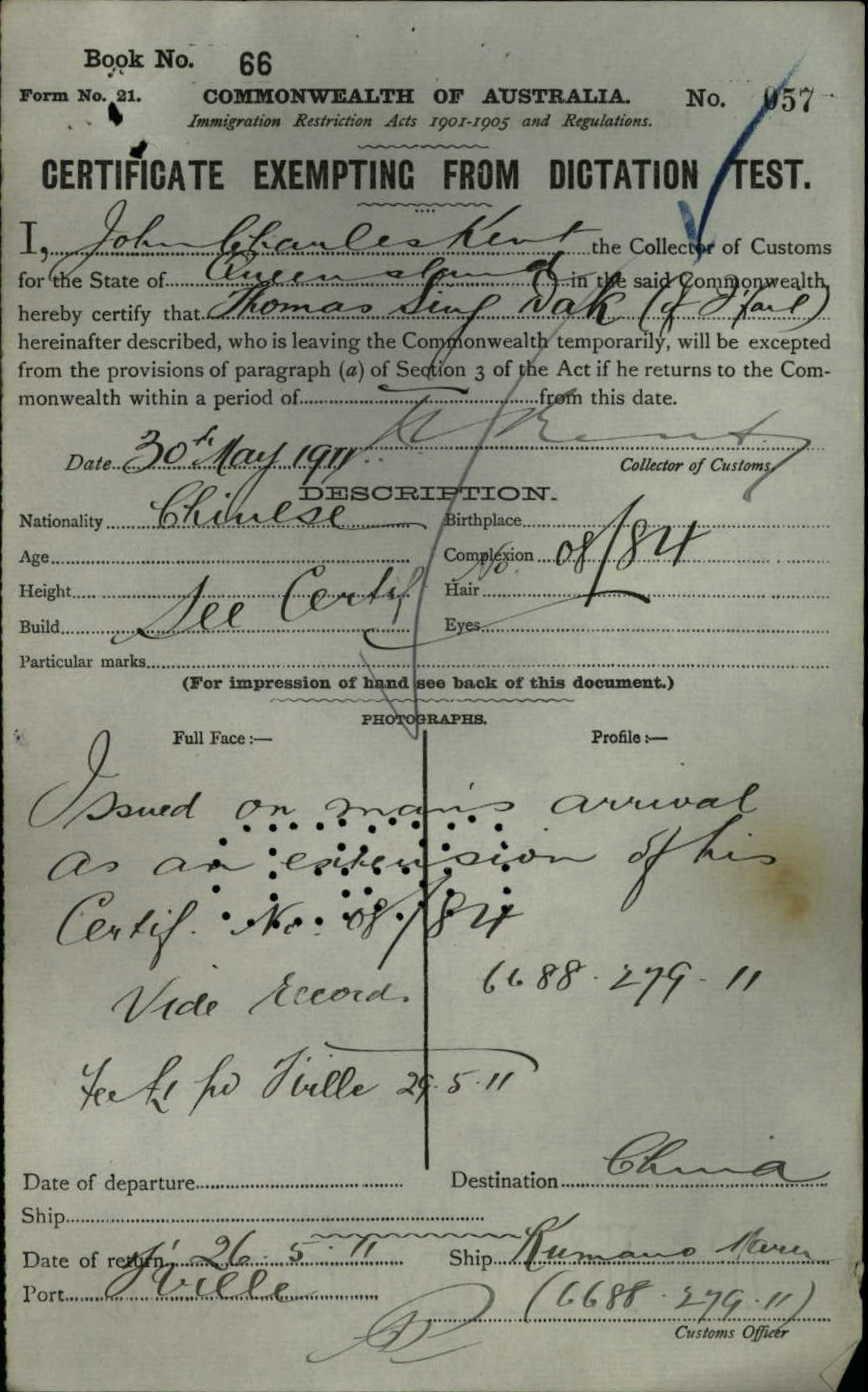 Book No. 66
Form No. 21. COMMONWEALTH OF AUSTRALIA. No. 057
Immigration Restriction Acts 1901-1905 and Regulations.
CERTIFICATE EXEMPTING FROM DICTATION TEST.
I, John Charles Kent the Collector of Customs
for the State of Queensland in the said Commonwealth,
hereby certify that Thomas Sing Dak (of
hereinafter described, who is leaving the Commonwealth temporarily, will be excepted
from the provisions of paragraph (a) of Section 3 of the Act if he returns to the Com-
monwealth within a period of from this date.
Date 30th May 1911 Kent
Collector of Customs
DESCRIPTION.
Nationality Chinese Birthplace
Age Complexion No. 08/84
Height See Certif Hair
Build Eyes
Particular marks
(For impression of hand see back of this document.)
PHOTOGRAPHS.
Full Face :— Profile :—
Issued on man's arrival
as an extension of his
Certif. No. 08/84
Vide Record. 6688.279.11
Fee £1 pd T'ville 29.5.11
Date of departure Destination China
Ship
Date of return 26.5.11 Ship Kumano Maru
Port T'ville (6688.279.11)
Customs Officer